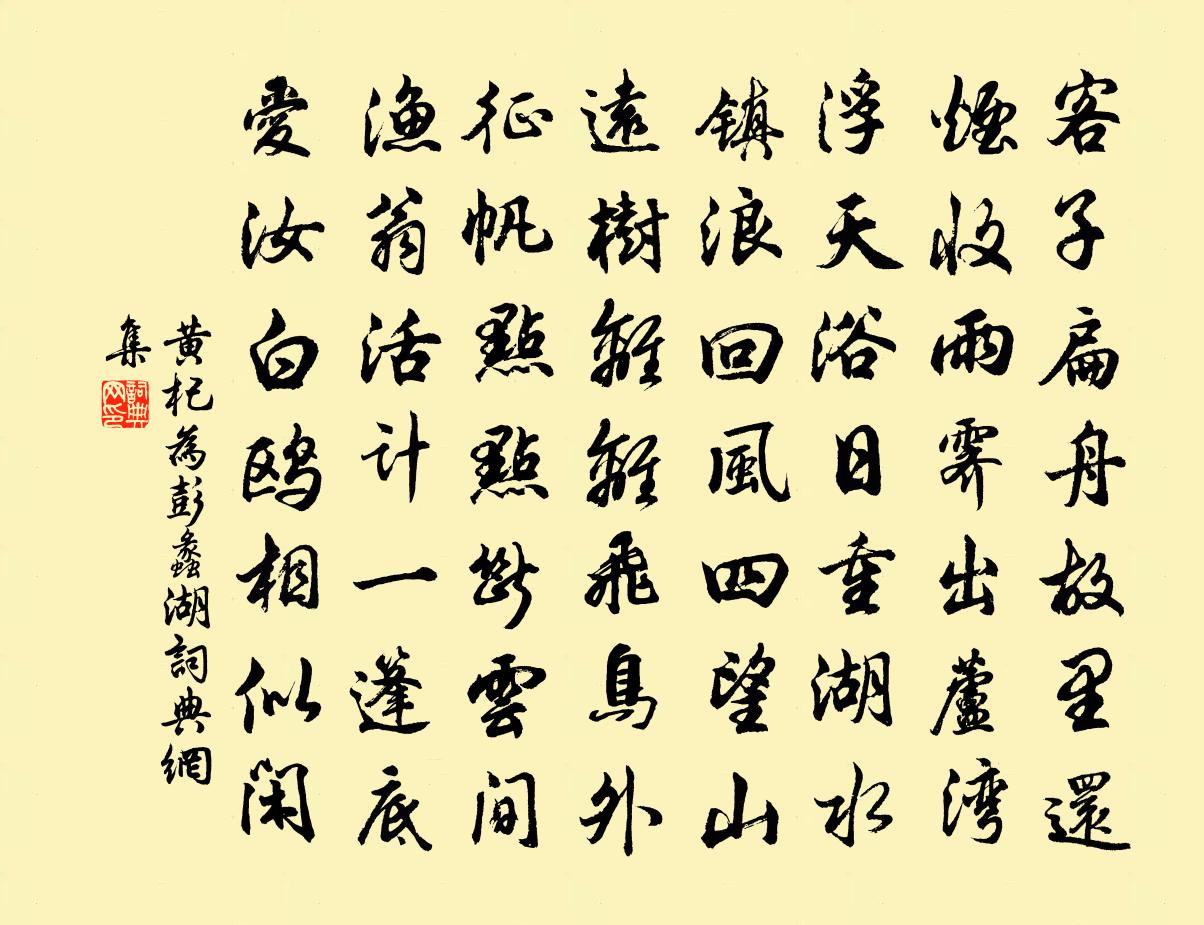 客子扁舟故里還
煙收雨霽出蘆湾
浮天浴日重湖水
镇浪回風四望山
遠樹離離飛鳥外
征帆點點斷雲間
渔翁活計一蓬底
愛汝白鸥相似闲
黄杞為彭蠡湖詞典網
集
詞典
网印